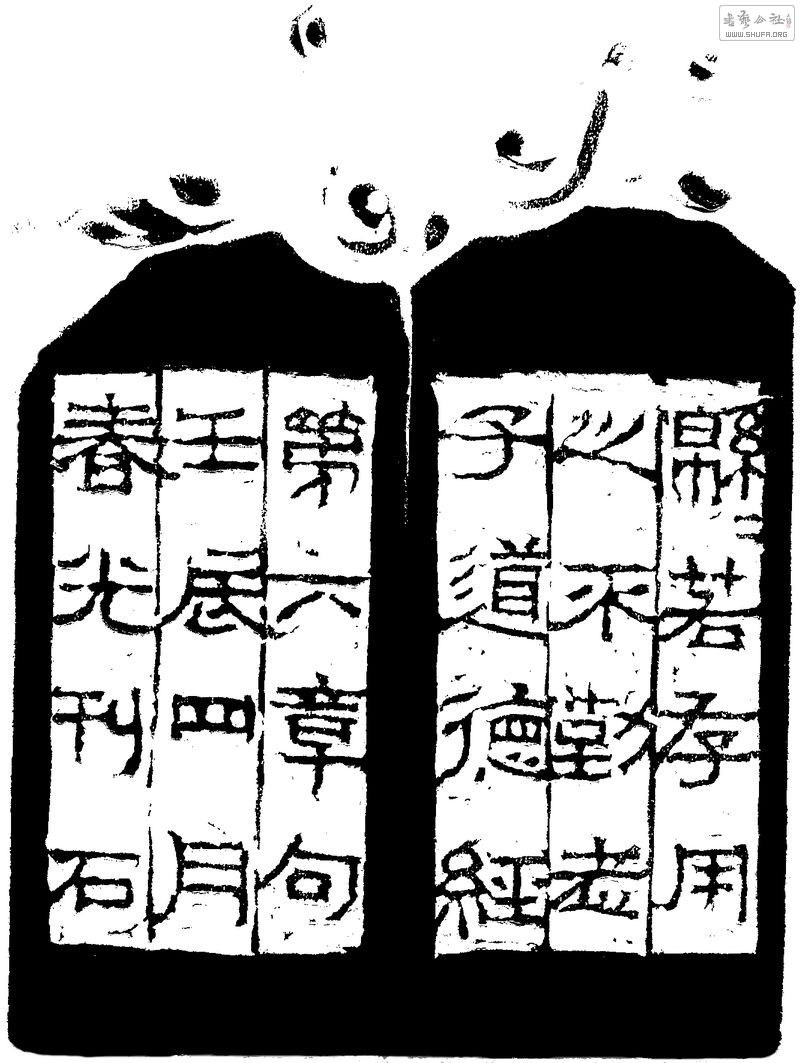 緜〻若存用
之不勤老
子道德經
第六章句
壬辰四月
春光刊石
书艺公社
WWW.SHUFA.ORG